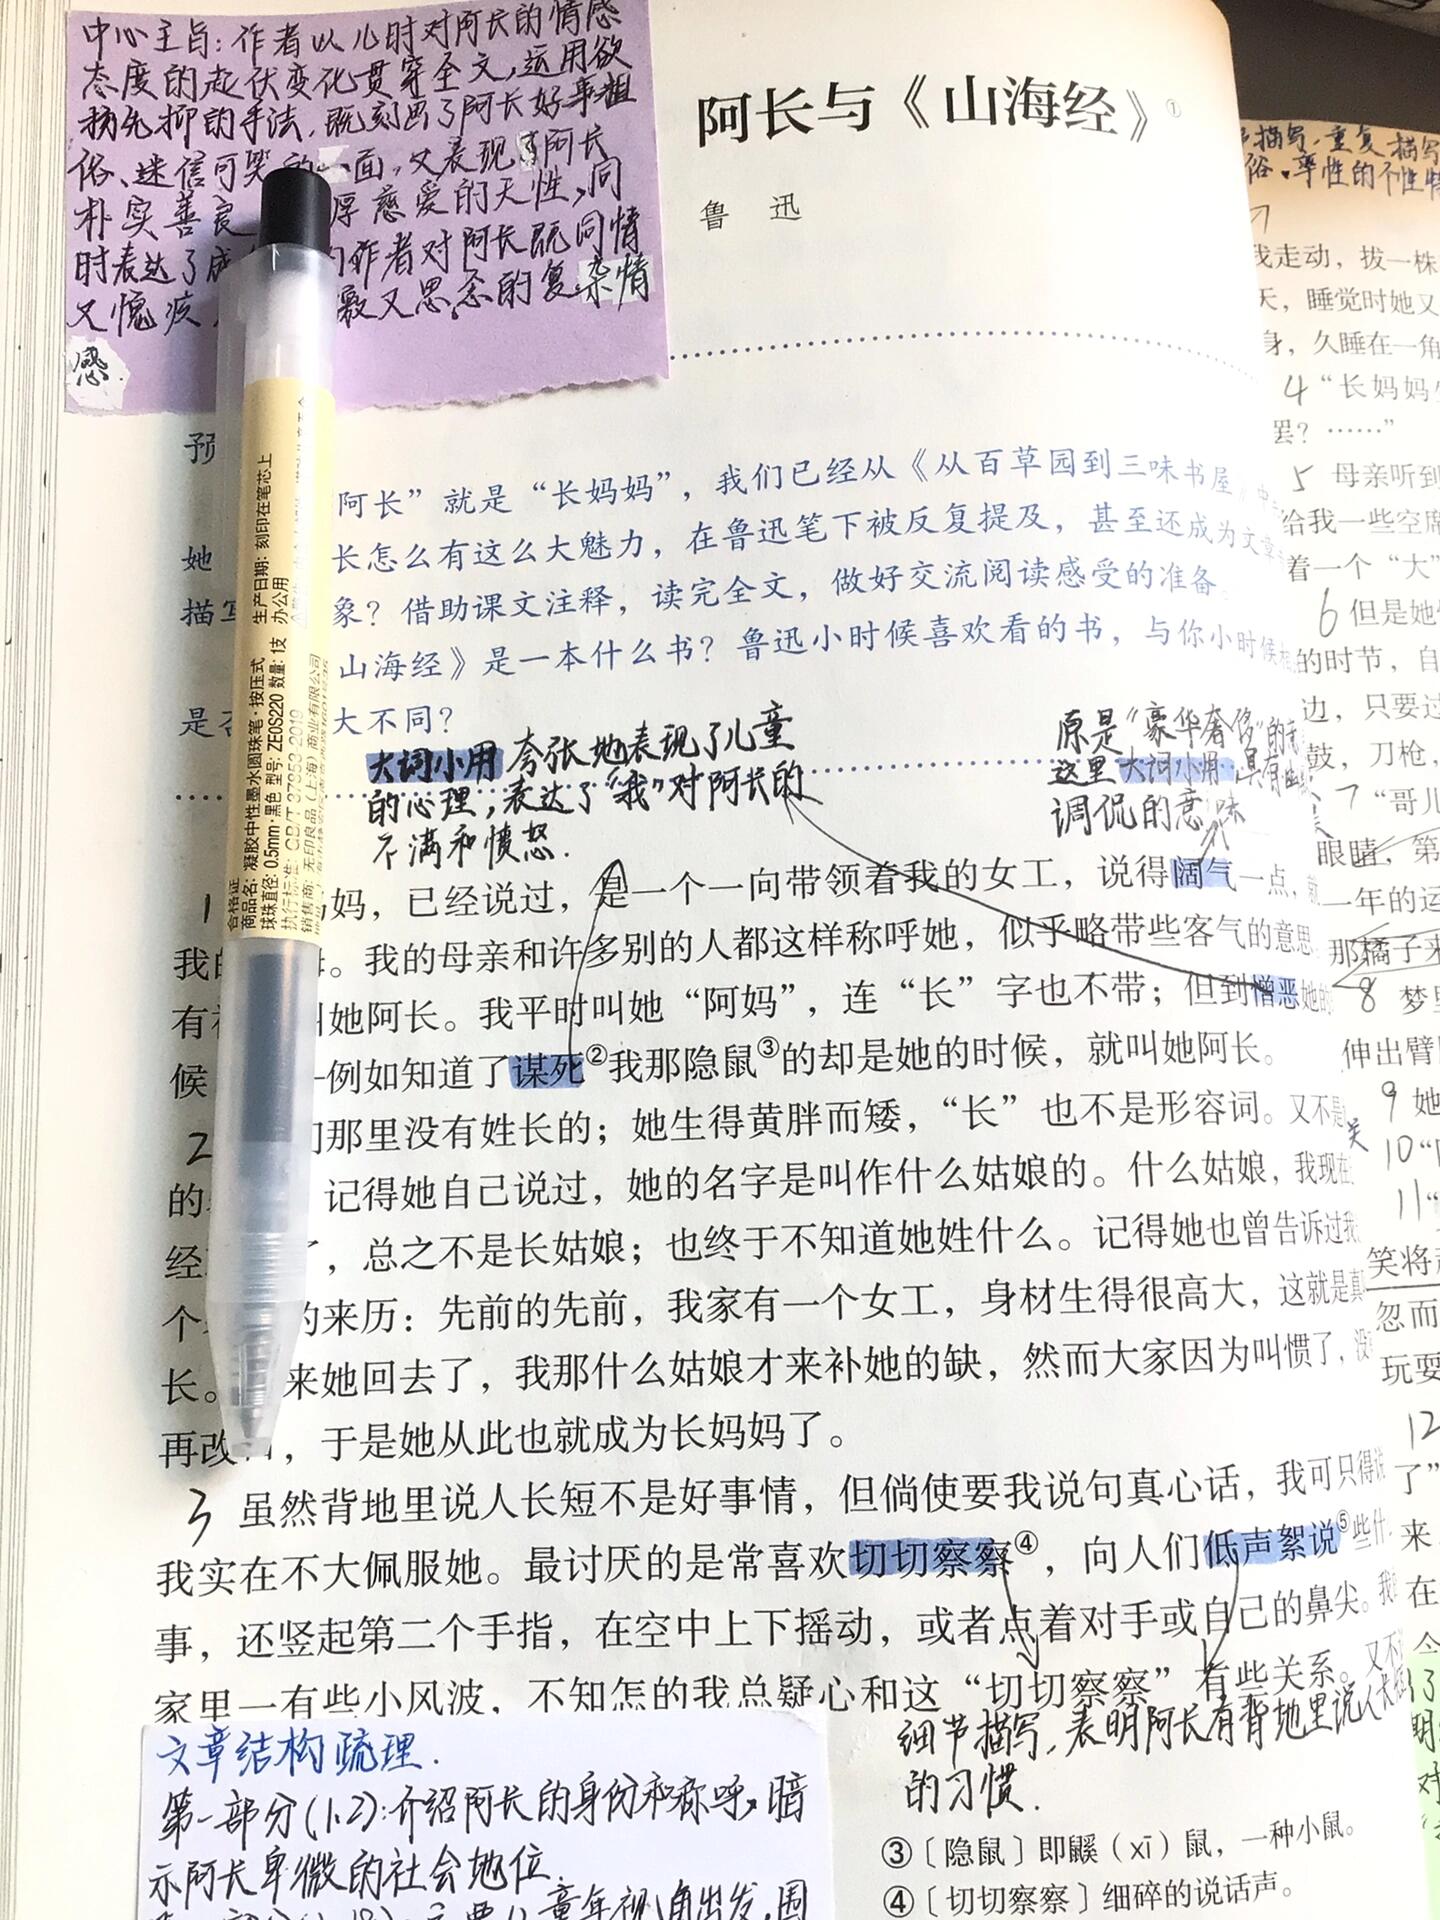 中心主旨：作者以儿时对阿长的情感
态度的起伏变化贯穿全文，运用欲
扬先抑的手法，既刻画了阿长好事粗
俗、迷信可笑的一面，又表现了阿长
朴实善良 厚慈爱的天性，同
时表达了成 的作者对阿长既同情
又愧疚 激又思念的复杂情
感
阿长与《山海经》①
鲁 迅
预
阿长”就是“长妈妈”，我们已经从《从百草园到三味书屋》中
她 长怎么有这么大魅力，在鲁迅笔下被反复提及，甚至还成为文章
描写 象？借助课文注释，读完全文，做好交流阅读感受的准备。
山海经》是一本什么书？鲁迅小时候喜欢看的书，与你小时候
是否 大不同？
大词小用 夸张地表现了儿童
的心理，表达了“我”对阿长的
不满和愤怒.
原是“豪华奢侈”的
这里大词小用 具有
调侃的意味
1 妈，已经说过，是一个一向带领着我的女工，说得阔气一点，
我的 。我的母亲和许多别的人都这样称呼她，似乎略带些客气的意思。
有 叫她阿长。我平时叫她“阿妈”，连“长”字也不带；但到憎恶她的
候 —例如知道了谋死②我那隐鼠③的却是她的时候，就叫她阿长。
2 们那里没有姓长的；她生得黄胖而矮，“长”也不是形容词。又不是
的 记得她自己说过，她的名字是叫作什么姑娘的。什么姑娘，我现在
经 了，总之不是长姑娘；也终于不知道她姓什么。记得她也曾告诉过我
个 的来历：先前的先前，我家有一个女工，身材生得很高大，这就是真
长。 来她回去了，我那什么姑娘才来补她的缺，然而大家因为叫惯了，没
再改口，于是她从此也就成为长妈妈了。
3 虽然背地里说人长短不是好事情，但倘使要我说句真心话，我可只得说
我实在不大佩服她。最讨厌的是常喜欢切切察察④，向人们低声絮说⑤些什
事，还竖起第二个手指，在空中上下摇动，或者点着对手或自己的鼻尖。我
家里一有些小风波，不知怎的我总疑心和这“切切察察”有些关系。又不
细节描写，表明阿长有背地里说人长短
的习惯.
③〔隐鼠〕即鼷（xī）鼠，一种小鼠。
④〔切切察察〕细碎的说话声。
文章结构梳理.
第一部分(1.2)：介绍阿长的身份和称呼，暗
示阿长卑微的社会地位.
童年视角出发，围
合格证
商品名：凝胶中性墨水圆珠笔·按压式
球珠直径：0.5mm·黑色 型号：ZE0S220 数量：1支
执行标准：GB/T 37853-2019
销售商：无印良品（上海）商业有限公司
生产日期：刻印在笔芯上
办公用
描写，重复描写
俗、率性的个性特
我走动，拔一株
天，睡觉时她又
身，久睡在一角
4 “长妈妈
罢？……”
5 母亲听到
给我一些空席
着一个“大”
6 但是她
的时节，自
边，只要过
鼓，刀枪，
7 “哥儿
眼睛，第
一年的运
那橘子来
8 梦里
伸出臂
9 她
10 “
11 “
笑将
忽而
玩耍
12
了”
来
在
今